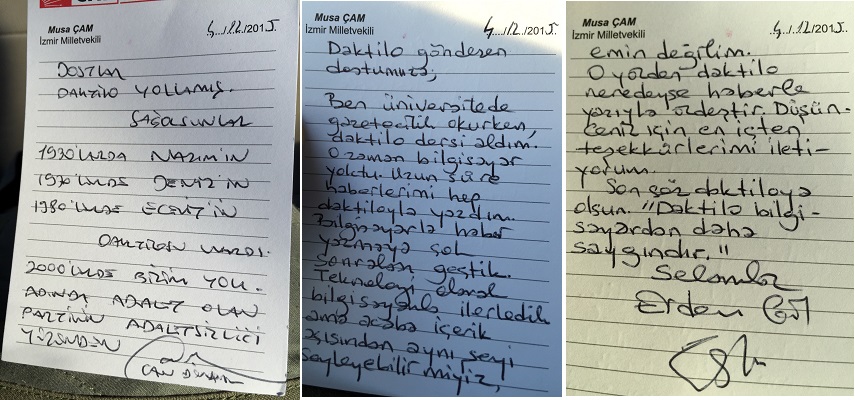 Musa ÇAM
İzmir Milletvekili
4.../12./2015.
DOSTLAR
DAKTİLO YOLLAMIŞ.
SAĞOLSUNLAR
1930'LARDA NAZIM'IN
1970'LERDE DENİZ'İN
1980'LERDE ECEVİT'İN
DAKTİLOSU VARDI.
2000'LERDE BİZİM YOK.
ADINDA ADALET OLAN
PARTİNİN ADALETSİZLİĞİ
YÜZÜNDEN
CAN DÜNDAR
Musa ÇAM
İzmir Milletvekili
4.../12./2015.
Daktilo gönderen
dostumuza;
Ben üniversitede
gazetecilik okurken,
daktilo dersi aldım.
O zaman bilgisayar
yoktu. Uzun süre
haberlerimi hep
daktiloyla yazdım.
Bilgisayarla haber
yazmaya çok
sonraları geçtik.
Teknoloji olarak
bilgisayarla ilerledik
ama acaba içerik
açısından aynı şeyi
söyleyebilir miyiz,
Musa ÇAM
İzmir Milletvekili
4.../12./2015..
emin değilim.
O yüzden daktilo
neredeyse haberle
yazıyla özdeştir. Düşün-
ceniz için en içten
teşekkürlerimi ileti-
yorum.
Son söz daktiloya
olsun. "Daktilo bilgi-
sayardan daha
saygındır."
Selamlar
Erdem Gül